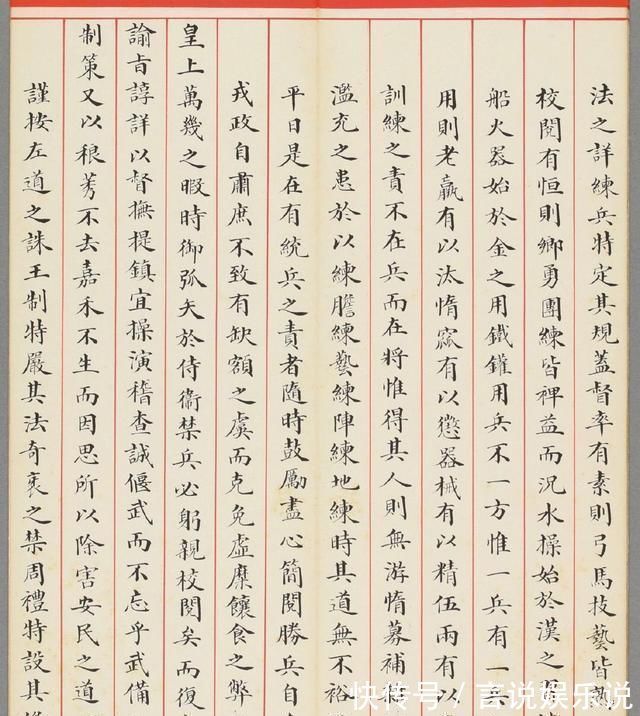 法之詳練兵特定其規蓋督率有素則弓馬技藝皆
校閱有恒則鄉勇團練皆裨益而況水操始於漢之
船火器始於金之用鐵鑵用兵不一方惟一兵有一
用則老羸有以汰惰窳有以懲器械有以精伍兩有以
訓練之責不在兵而在將惟得其人則無游惰募補
濫充之患於以練膽練藝練陣練地練時其道無不裕
平日是在有統兵之責者隨時鼓勵盡心簡閱勝兵自
戎政自肅庶不致有缺額之虞而克免虛糜饟食之弊
皇上萬幾之暇時御弧矢於侍衞禁兵必躬親校閱矣而復
諭旨諄詳以督撫提鎮宜操演稽查誠偃武而不忘乎武備
制策又以稂莠不去嘉禾不生而因思所以除害安民之道
謹按左道之誅王制特嚴其法奇衺之禁周禮特設其
快传号/言说娱乐说